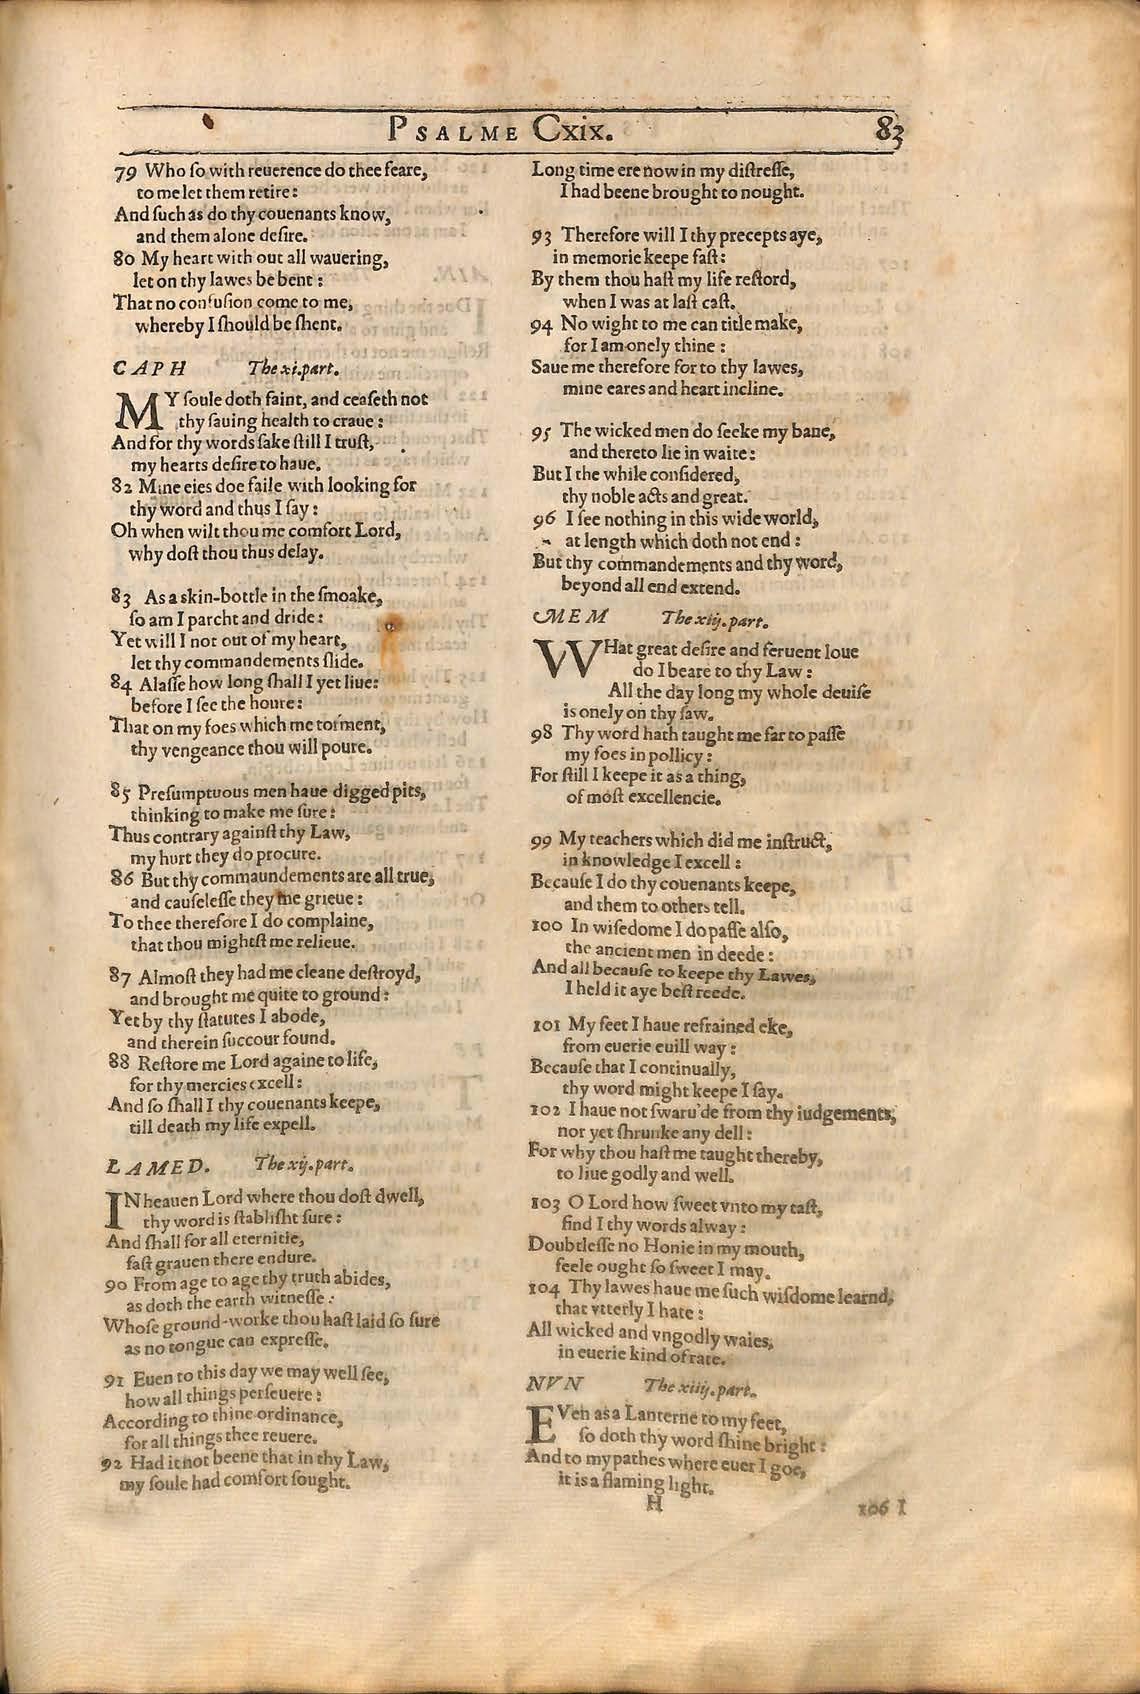 PSALME Cxix. 83
79 Who ſo with reuerence do thee feare,
to me let them retire:
And ſuch as do thy couenants know,
and them alone deſire.
80 My heart with out all wauering,
let on thy lawes be bent:
That no confuſion come to me,
whereby I ſhould be ſhent.
CAPH The xi. part.
MY ſoule doth faint, and ceaſeth not
thy ſauing health to craue:
And for thy words ſake ſtill I truſt,
my hearts deſire to haue.
82 Mine eies doe faile with looking for
thy word and thus I ſay:
Oh when wilt thou me comfort Lord,
why doſt thou thus delay.
83 As a skin-bottle in the ſmoake,
ſo am I parcht and dride:
Yet will I not out of my heart,
let thy commandements ſlide.
84 Alaſſe how long ſhall I yet liue:
before I ſee the houre:
That on my foes which me torment,
thy vengeance thou will poure.
85 Preſumptuous men haue digged pits,
thinking to make me ſure:
Thus contrary againſt thy Law,
my hurt they do procure.
86 But thy commaundements are all true,
and cauſeleſſe they me grieue:
To thee therefore I do complaine,
that thou mightſt me relieue.
87 Almoſt they had me cleane deſtroyd,
and brought me quite to ground:
Yet by thy ſtatutes I abode,
and therein ſuccour found.
88 Reſtore me Lord againe to life,
for thy mercies excell:
And ſo ſhall I thy couenants keepe,
till death my life expell.
LAMED. The xij. part.
IN heauen Lord where thou doſt dwell,
thy word is ſtabliſht ſure:
And ſhall for all eternitie,
faſt grauen there endure.
90 From age to age thy truth abides,
as doth the earth witneſſe:
Whoſe ground-worke thou haſt laid ſo ſure
as no tongue can expreſſe.
91 Euen to this day we may well ſee,
how all things perſeuere:
According to thine ordinance,
for all things thee reuere.
92 Had it not beene that in thy Law,
my ſoule had comfort ſought.
Long time ere now in my diſtreſſe,
I had beene brought to nought.
93 Therefore will I thy precepts aye,
in memorie keepe faſt:
By them thou haſt my life reſtord,
when I was at laſt caſt.
94 No wight to me can title make,
for I am onely thine:
Saue me therefore for to thy lawes,
mine eares and heart incline.
95 The wicked men do ſeeke my bane,
and thereto lie in waite:
But I the while conſidered,
thy noble acts and great.
96 I ſee nothing in this wide world,
at length which doth not end:
But thy commandements and thy word,
beyond all end extend.
MEM The xiij. part.
WHat great deſire and feruent loue
do I beare to thy Law:
All the day long my whole deuiſe
is onely on thy ſaw.
98 Thy word hath taught me far to paſſe
my foes in pollicy:
For ſtill I keepe it as a thing,
of moſt excellencie.
99 My teachers which did me inſtruct,
in knowledge I excell:
Becauſe I do thy couenants keepe,
and them to others tell.
100 In wiſedome I do paſſe alſo,
the ancient men in deede:
And all becauſe to keepe thy Lawes,
I held it aye beſt reede.
101 My feet I haue refrained eke,
from euerie euill way:
Becauſe that I continually,
thy word might keepe I ſay.
102 I haue not ſwaru'de from thy iudgements,
nor yet ſhrunke any dell:
For why thou haſt me taught thereby,
to liue godly and well.
103 O Lord how ſweet vnto my taſt,
find I thy words alway:
Doubtleſſe no Honie in my mouth,
feele ought ſo ſweet I may.
104 Thy lawes haue me ſuch wiſdome learnd,
that vtterly I hate:
All wicked and vngodly waies,
in euerie kind of rate.
NVN The xiiij. part.
EVen as a Lanterne to my feet,
ſo doth thy word ſhine bright:
And to my pathes where euer I goe,
it is a flaming light.
H 106 I